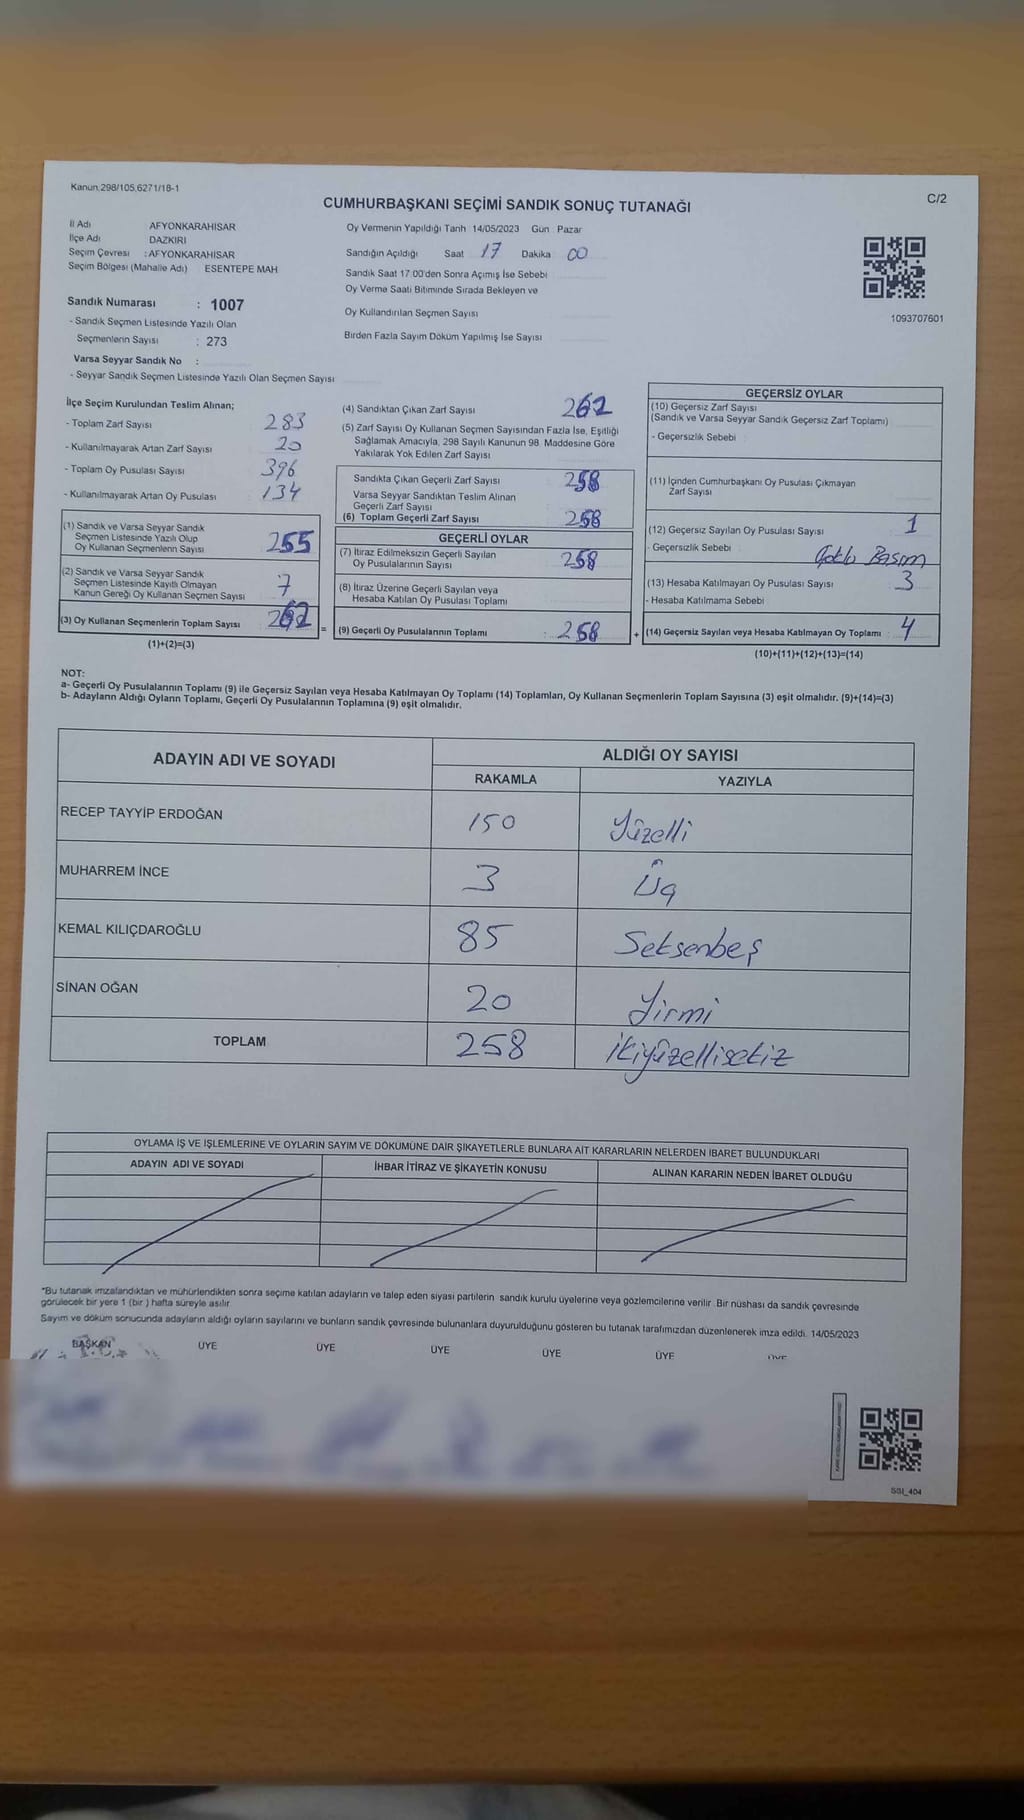 Kanun,298/105,6271/18-1
C/2
CUMHURBAŞKANI SEÇİMİ SANDIK SONUÇ TUTANAĞI
İl Adı AFYONKARAHISAR
İlçe Adı DAZKIRI
Seçim Çevresi : AFYONKARAHISAR
Seçim Bölgesi (Mahalle Adı) ESENTEPE MAH
Sandık Numarası : 1007
- Sandık Seçmen Listesinde Yazılı Olan
Seçmenlerin Sayısı : 273
Varsa Seyyar Sandık No :
- Seyyar Sandık Seçmen Listesinde Yazılı Olan Seçmen Sayısı
Oy Vermenin Yapıldığı Tarih 14/05/2023 Gün Pazar
Sandığın Açıldığı Saat 17 Dakika 00
Sandık Saat 17 00'den Sonra Açımış İse Sebebi
Oy Verme Saati Bitiminde Sırada Bekleyen ve
Oy Kullandırılan Seçmen Sayısı
Birden Fazla Sayım Döküm Yapılmış İse Sayısı
1093707601
İlçe Seçim Kurulundan Teslim Alınan;
- Toplam Zarf Sayısı 283
- Kullanılmayarak Artan Zarf Sayısı 20
- Toplam Oy Pusulası Sayısı 396
- Kullanılmayarak Artan Oy Pusulası 134
(1) Sandık ve Varsa Seyyar Sandık
Seçmen Listesinde Yazılı Olup
Oy Kullanan Seçmenlerin Sayısı 255
(2) Sandık ve Varsa Seyyar Sandık
Seçmen Listesinde Kayıtlı Olmayan
Kanun Gereği Oy Kullanan Seçmen Sayısı 7
(3) Oy Kullanan Seçmenlerin Toplam Sayısı 262
=
(1)+(2)=(3)
(4) Sandıktan Çıkan Zarf Sayısı 262
(5) Zarf Sayısı Oy Kullanan Seçmen Sayısından Fazla İse, Eşitliği
Sağlamak Amacıyla, 298 Sayılı Kanunun 98. Maddesine Göre
Yakılarak Yok Edilen Zarf Sayısı
Sandıkta Çıkan Geçerli Zarf Sayısı 258
Varsa Seyyar Sandıktan Teslim Alınan
Geçerli Zarf Sayısı
(6) Toplam Geçerli Zarf Sayısı 258
GEÇERLİ OYLAR
(7) İtiraz Edilmeksizin Geçerli Sayılan
Oy Pusulalarının Sayısı 258
(8) İtiraz Üzerine Geçerli Sayılan veya
Hesaba Katılan Oy Pusulası Toplamı
(9) Geçerli Oy Pusulalarının Toplamı : 258
+
GEÇERSİZ OYLAR
(10) Geçersiz Zarf Sayısı
(Sandık ve Varsa Seyyar Sandık Geçersiz Zarf Toplamı)
- Geçersizlik Sebebi
(11) İçinden Cumhurbaşkanı Oy Pusulası Çıkmayan
Zarf Sayısı
(12) Geçersiz Sayılan Oy Pusulası Sayısı 1
- Geçersizlik Sebebi Çoklu Basım
(13) Hesaba Katılmayan Oy Pusulası Sayısı 3
- Hesaba Katılmama Sebebi
(14) Geçersiz Sayılan veya Hesaba Katılmayan Oy Toplamı : 4
(10)+(11)+(12)+(13)=(14)
NOT:
a- Geçerli Oy Pusulalarının Toplamı (9) ile Geçersiz Sayılan veya Hesaba Katılmayan Oy Toplamı (14) Toplamları, Oy Kullanan Seçmenlerin Toplam Sayısına (3) eşit olmalıdır. (9)+(14)=(3)
b- Adayların Aldığı Oyların Toplamı, Geçerli Oy Pusulalarının Toplamına (9) eşit olmalıdır.
ADAYIN ADI VE SOYADI ALDIĞI OY SAYISI
RAKAMLA YAZIYLA
RECEP TAYYİP ERDOĞAN 150 Yüzelli
MUHARREM İNCE 3 Üç
KEMAL KILIÇDAROĞLU 85 Seksenbeş
SİNAN OĞAN 20 Yirmi
TOPLAM 258 İkiyüzellisekiz
OYLAMA İŞ VE İŞLEMLERINE VE OYLARIN SAYIM VE DÖKÜMÜNE DAİR ŞİKAYETLERLE BUNLARA AİT KARARLARIN NELERDEN İBARET BULUNDUKLARI
ADAYIN ADI VE SOYADI İHBAR İTİRAZ VE ŞİKAYETİN KONUSU ALINAN KARARIN NEDEN İBARET OLDUĞU
*Bu tutanak imzalandıktan ve mühürlendikten sonra seçime katılan adayların ve talep eden siyasi partilerin sandık kurulu üyelerine veya gözlemcilerine verilir .Bir nüshası da sandık çevresinde
görülecek bir yere 1 (bir ) hafta süreyle asılır
Sayım ve döküm sonucunda adayların aldığı oyların sayılarını ve bunların sandık çevresinde bulunanlara duyurulduğunu gösteren bu tutanak tarafımızdan düzenlenerek imza edildi. 14/05/2023
BAŞKAN ÜYE ÜYE ÜYE ÜYE ÜYE ÜYE
SSI_404